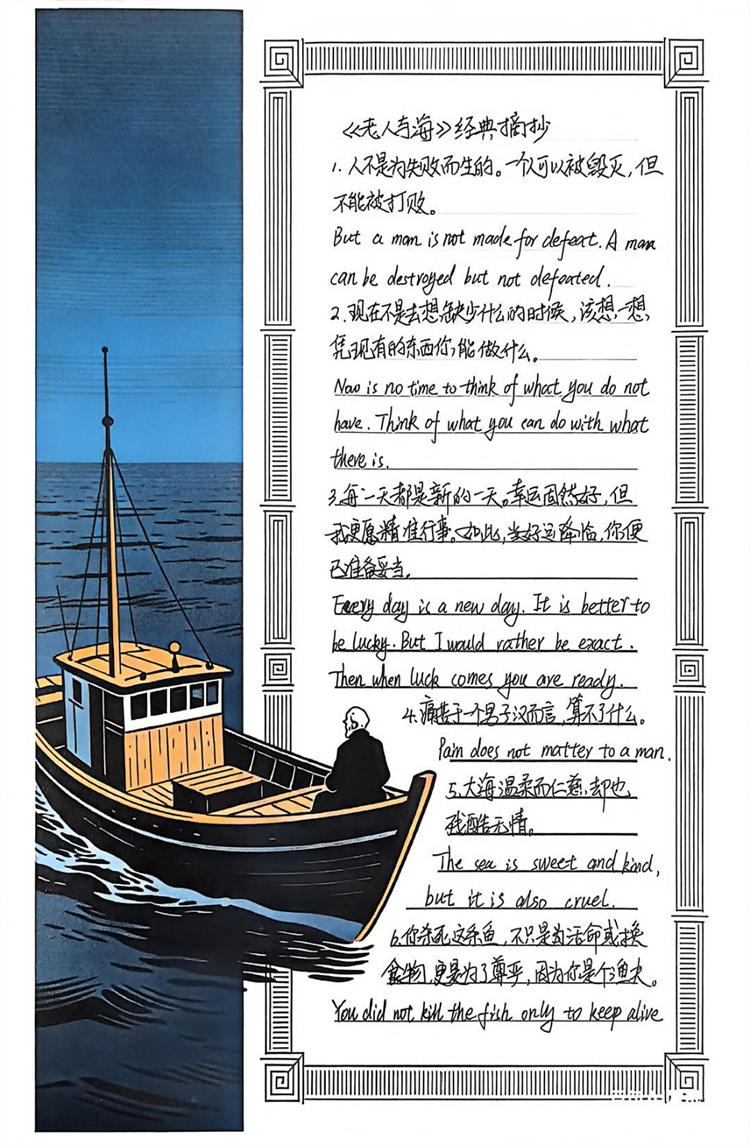 《老人与海》经典摘抄
1. 人不是为失败而生的。一个人可以被毁灭，但
不能被打败。
But a man is not made for defeat. A man
can be destroyed but not defeated.
2. 现在不是去想缺少什么的时候，该想一想，
凭现有的东西你能做什么。
Now is no time to think of what you do not
have. Think of what you can do with what
there is.
3. 每一天都是新的一天。幸运固然好，但
我更愿精准行事。如此，当好运降临，你便
已准备妥当。
Every day is a new day. It is better to
be lucky. But I would rather be exact.
Then when luck comes you are ready.
4. 痛苦于一个男子汉而言，算不了什么。
Pain does not matter to a man.
5. 大海温柔而仁慈，却也
残酷无情。
The sea is sweet and kind,
but it is also cruel.
6. 你杀死这条鱼，不只是为活命或换
食物，更是为了尊严，因为你是个渔夫。
You did not kill the fish only to keep alive